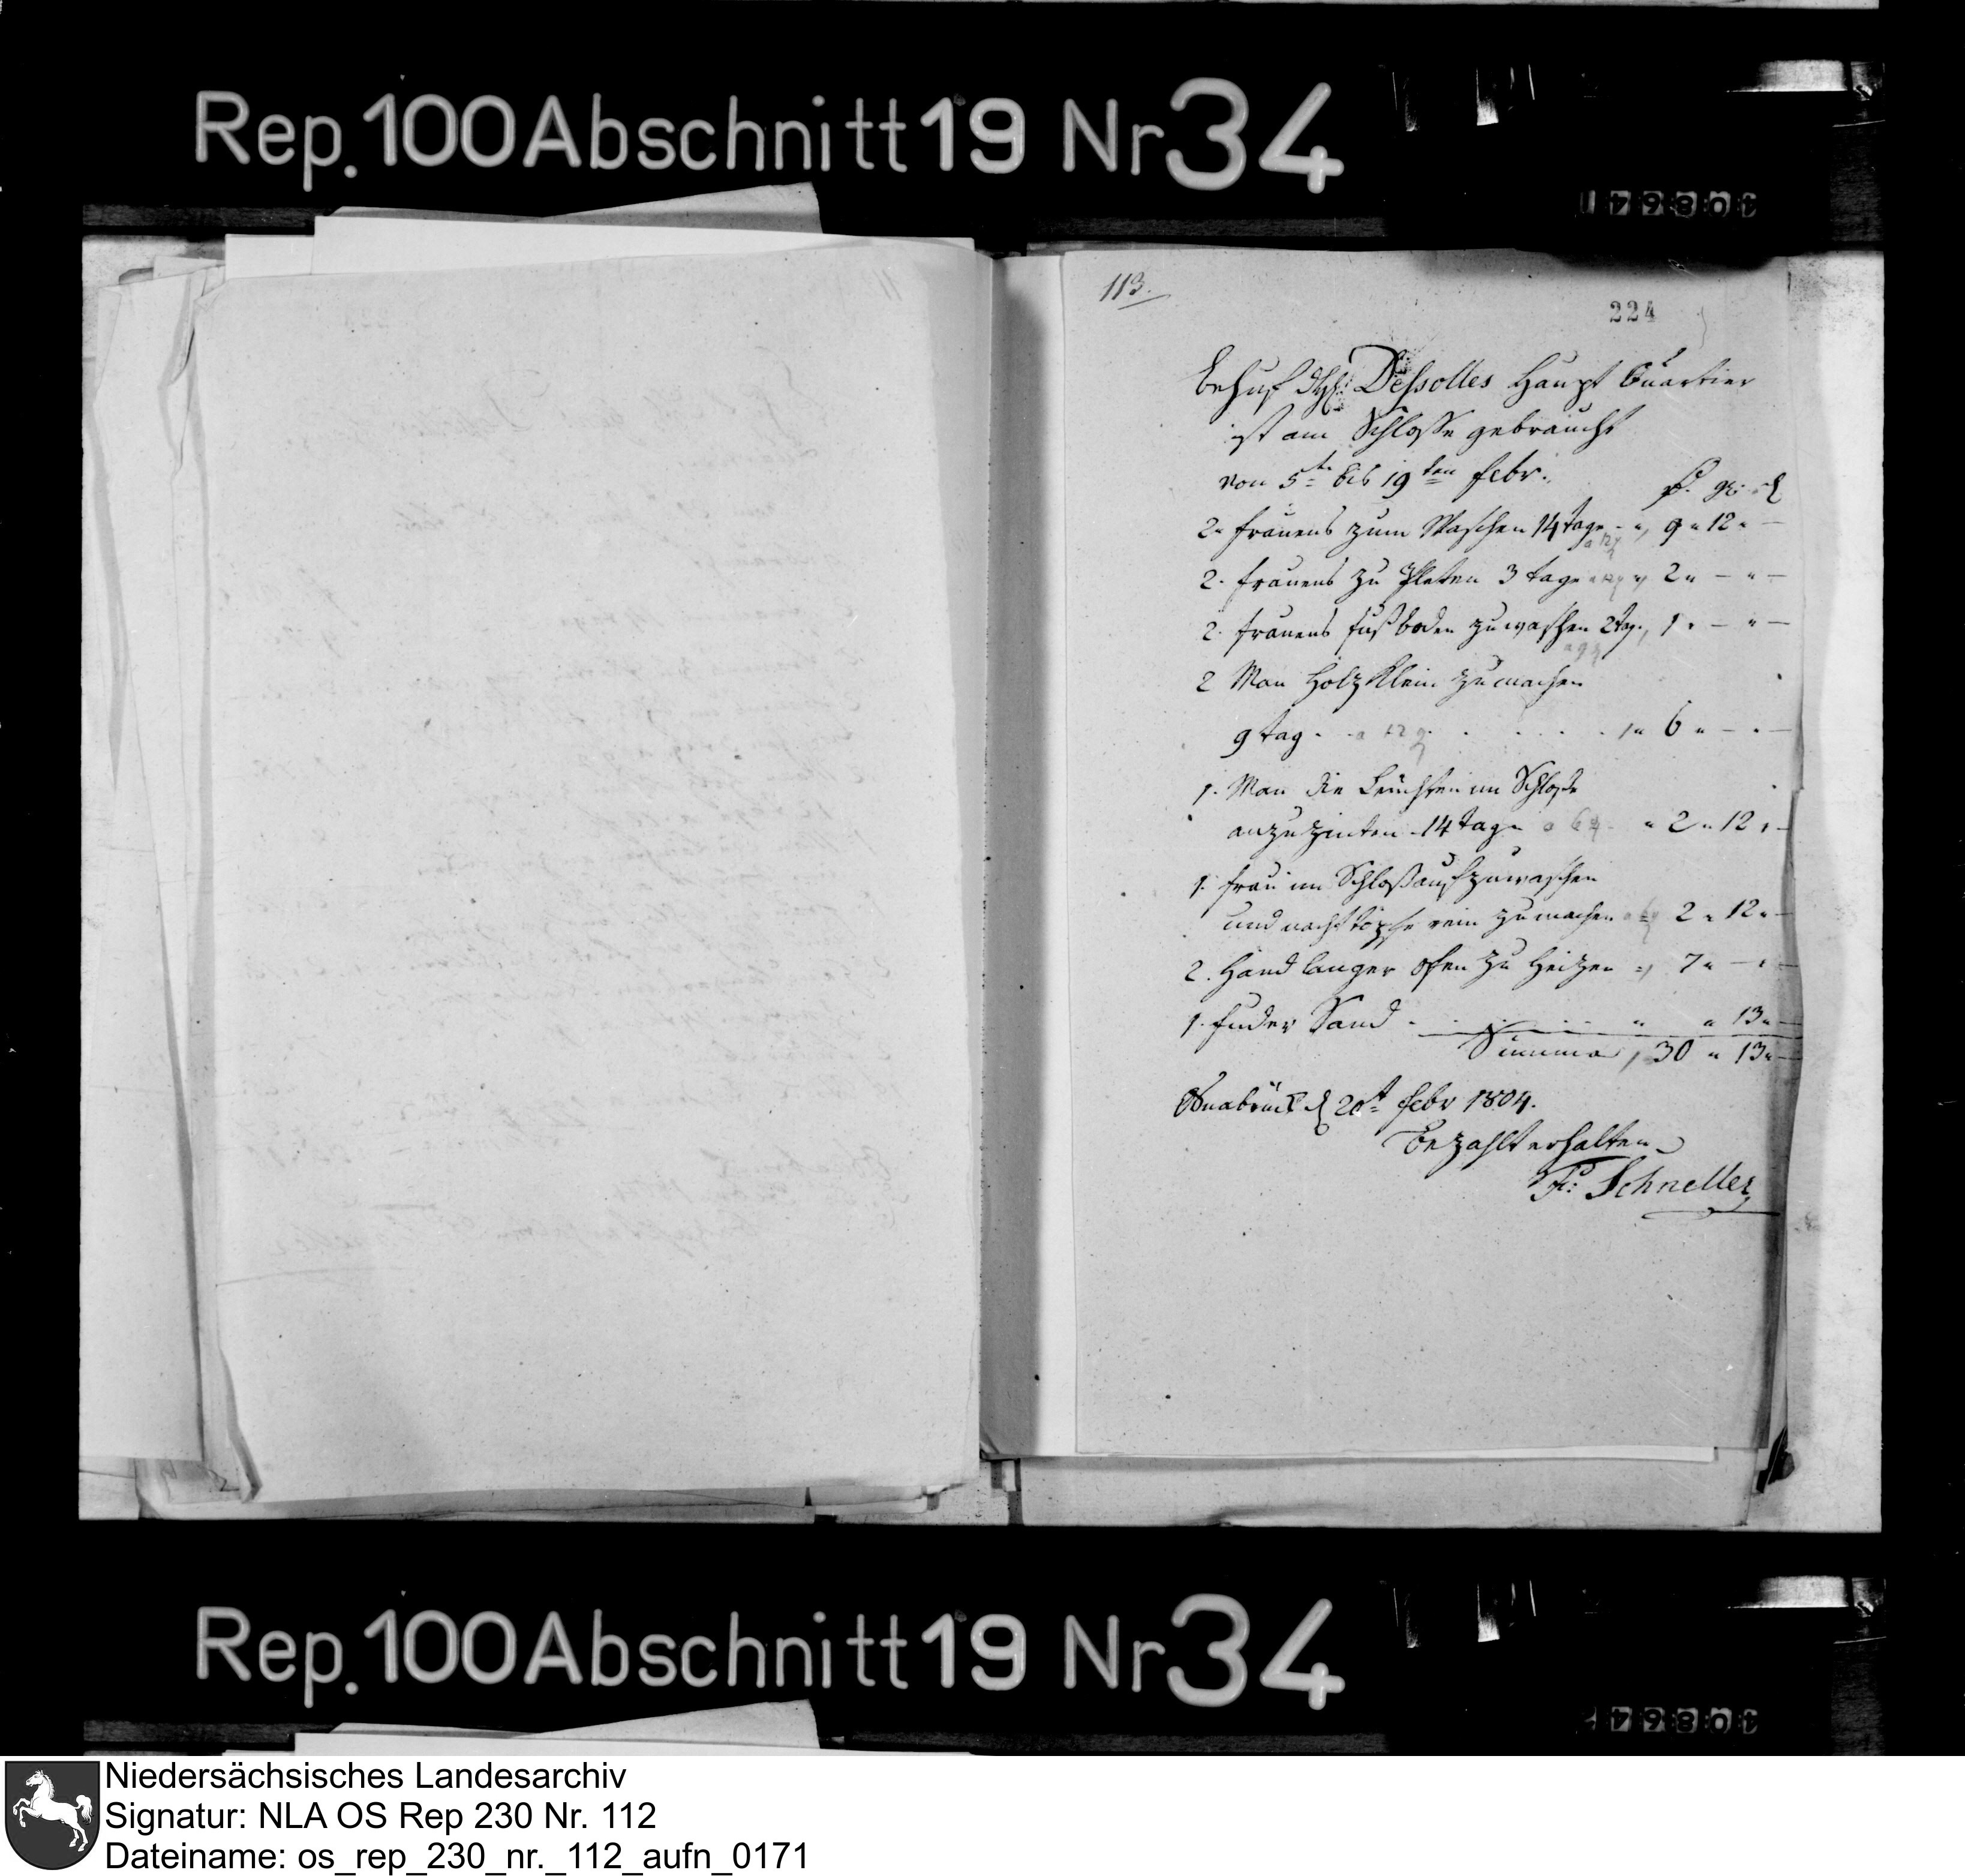 Rep. 100 Abschnitt 19 Nr 34
113.
224
Behuf Dessolles Haupt Quartier
ist am Schlosse gebraucht
von 5te bis 19ten Febr.
2. frauens zum Waschen 14 tage 9 " 12 " —
2. frauens zu Pletten 3 tage 2 " — " —
2. frauens fußboden zuwaschen 2 tag, 1 " — " —
2 Man Holz Klein zumachen
9 tag 6 " — " —
1. Man die Leuchten im Schlosse
anzuzinten 14 tage a 6 " 2 " 12 " —
1. frau im Schloß aufzuwaschen
und nachttöpfe rein zumachen 2 " 12 " —
2. Handlanger ofen zu Heizen 7 " — " —
1. fuder Sand " " 13 " —
Summa 30 " 13 " —
Osnabrück d 20t Febr 1804.
Bezahlt erhalten
Fr: Schneller
Rep. 100 Abschnitt 19 Nr 34
Niedersächsisches Landesarchiv
Signatur: NLA OS Rep 230 Nr. 112
Dateiname: os_rep_230_nr._112_aufn_0171